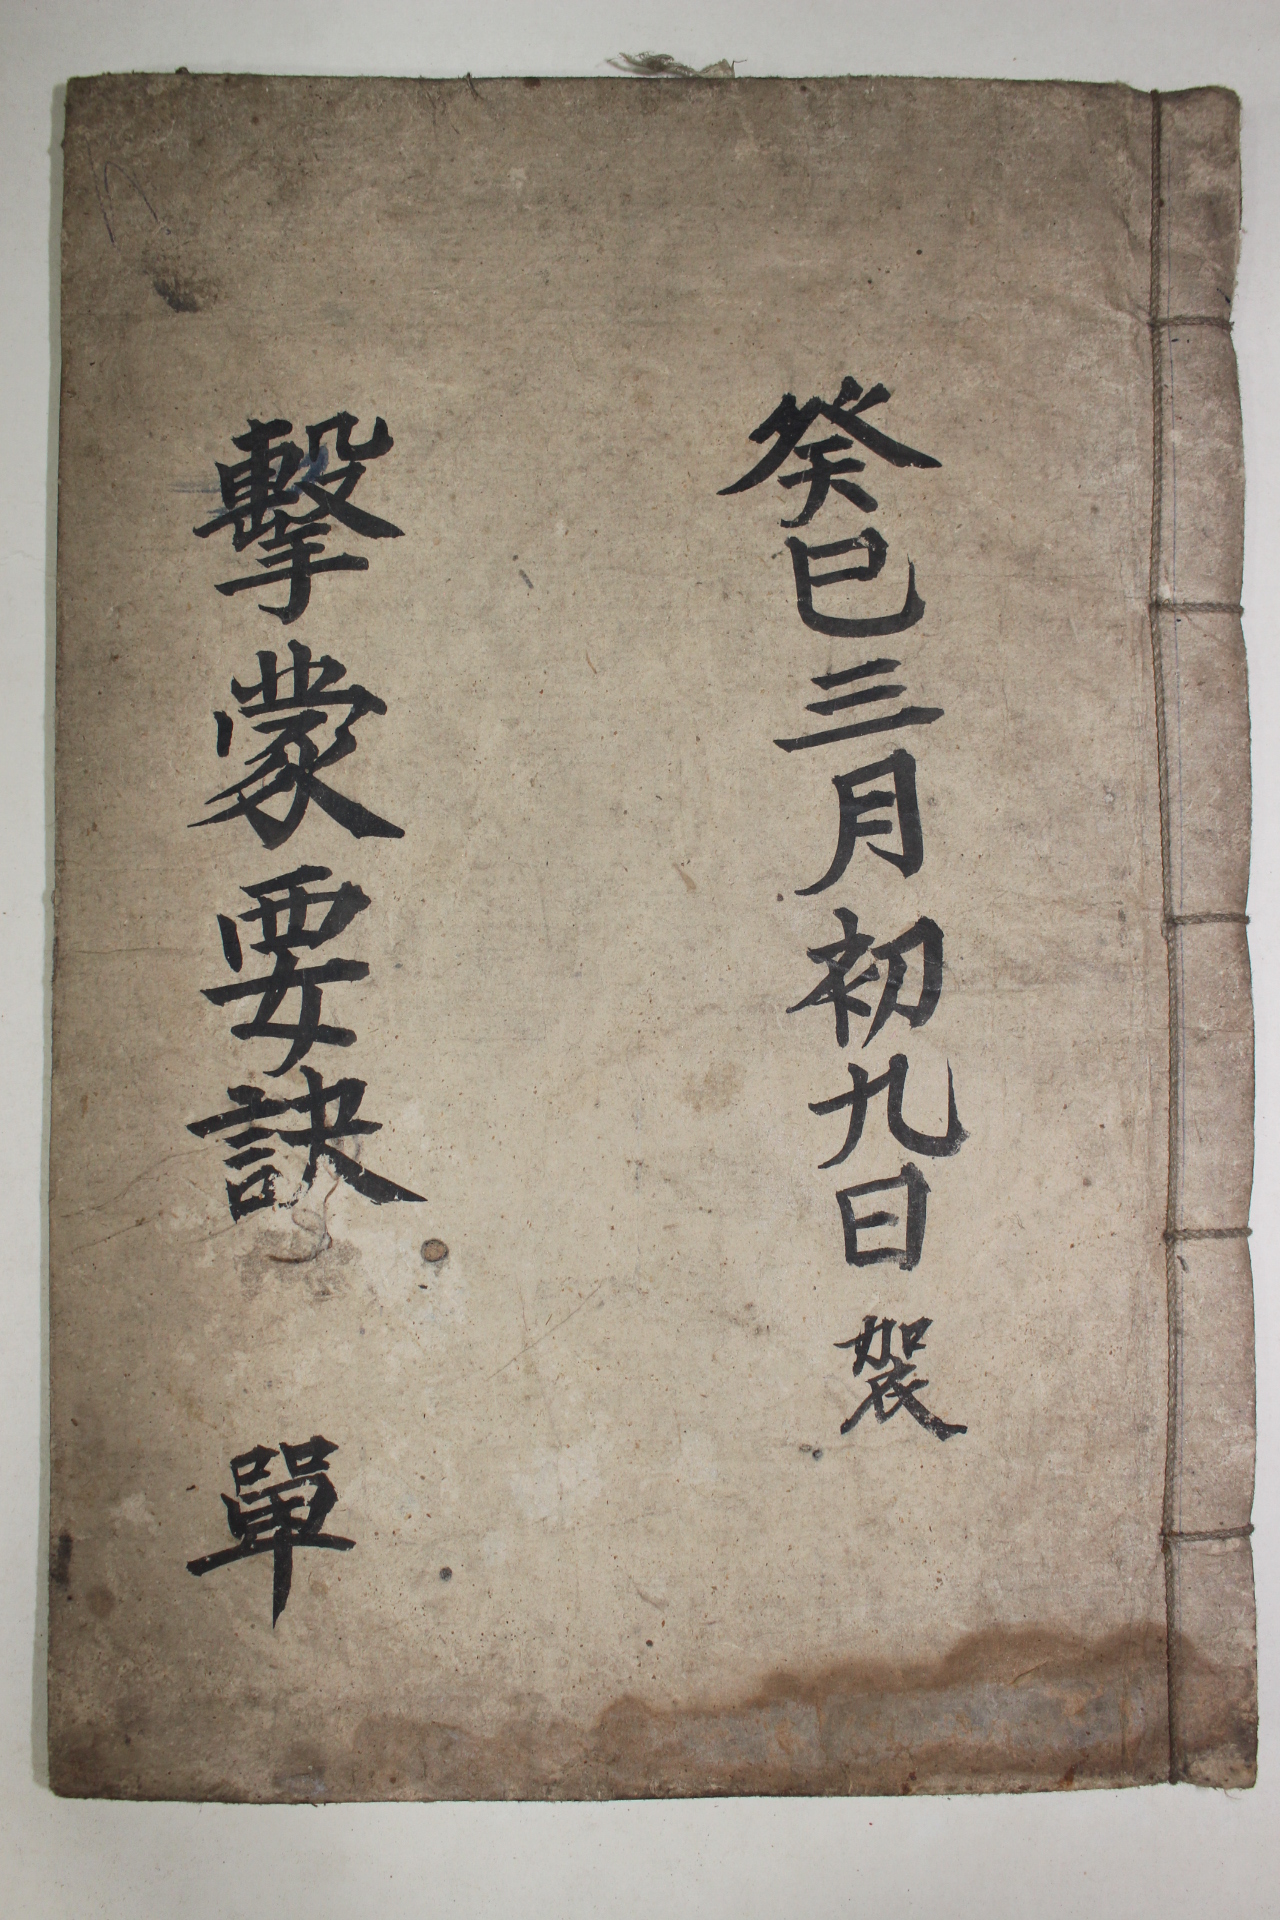 癸巳三月初九日 袈
擊蒙要訣 單